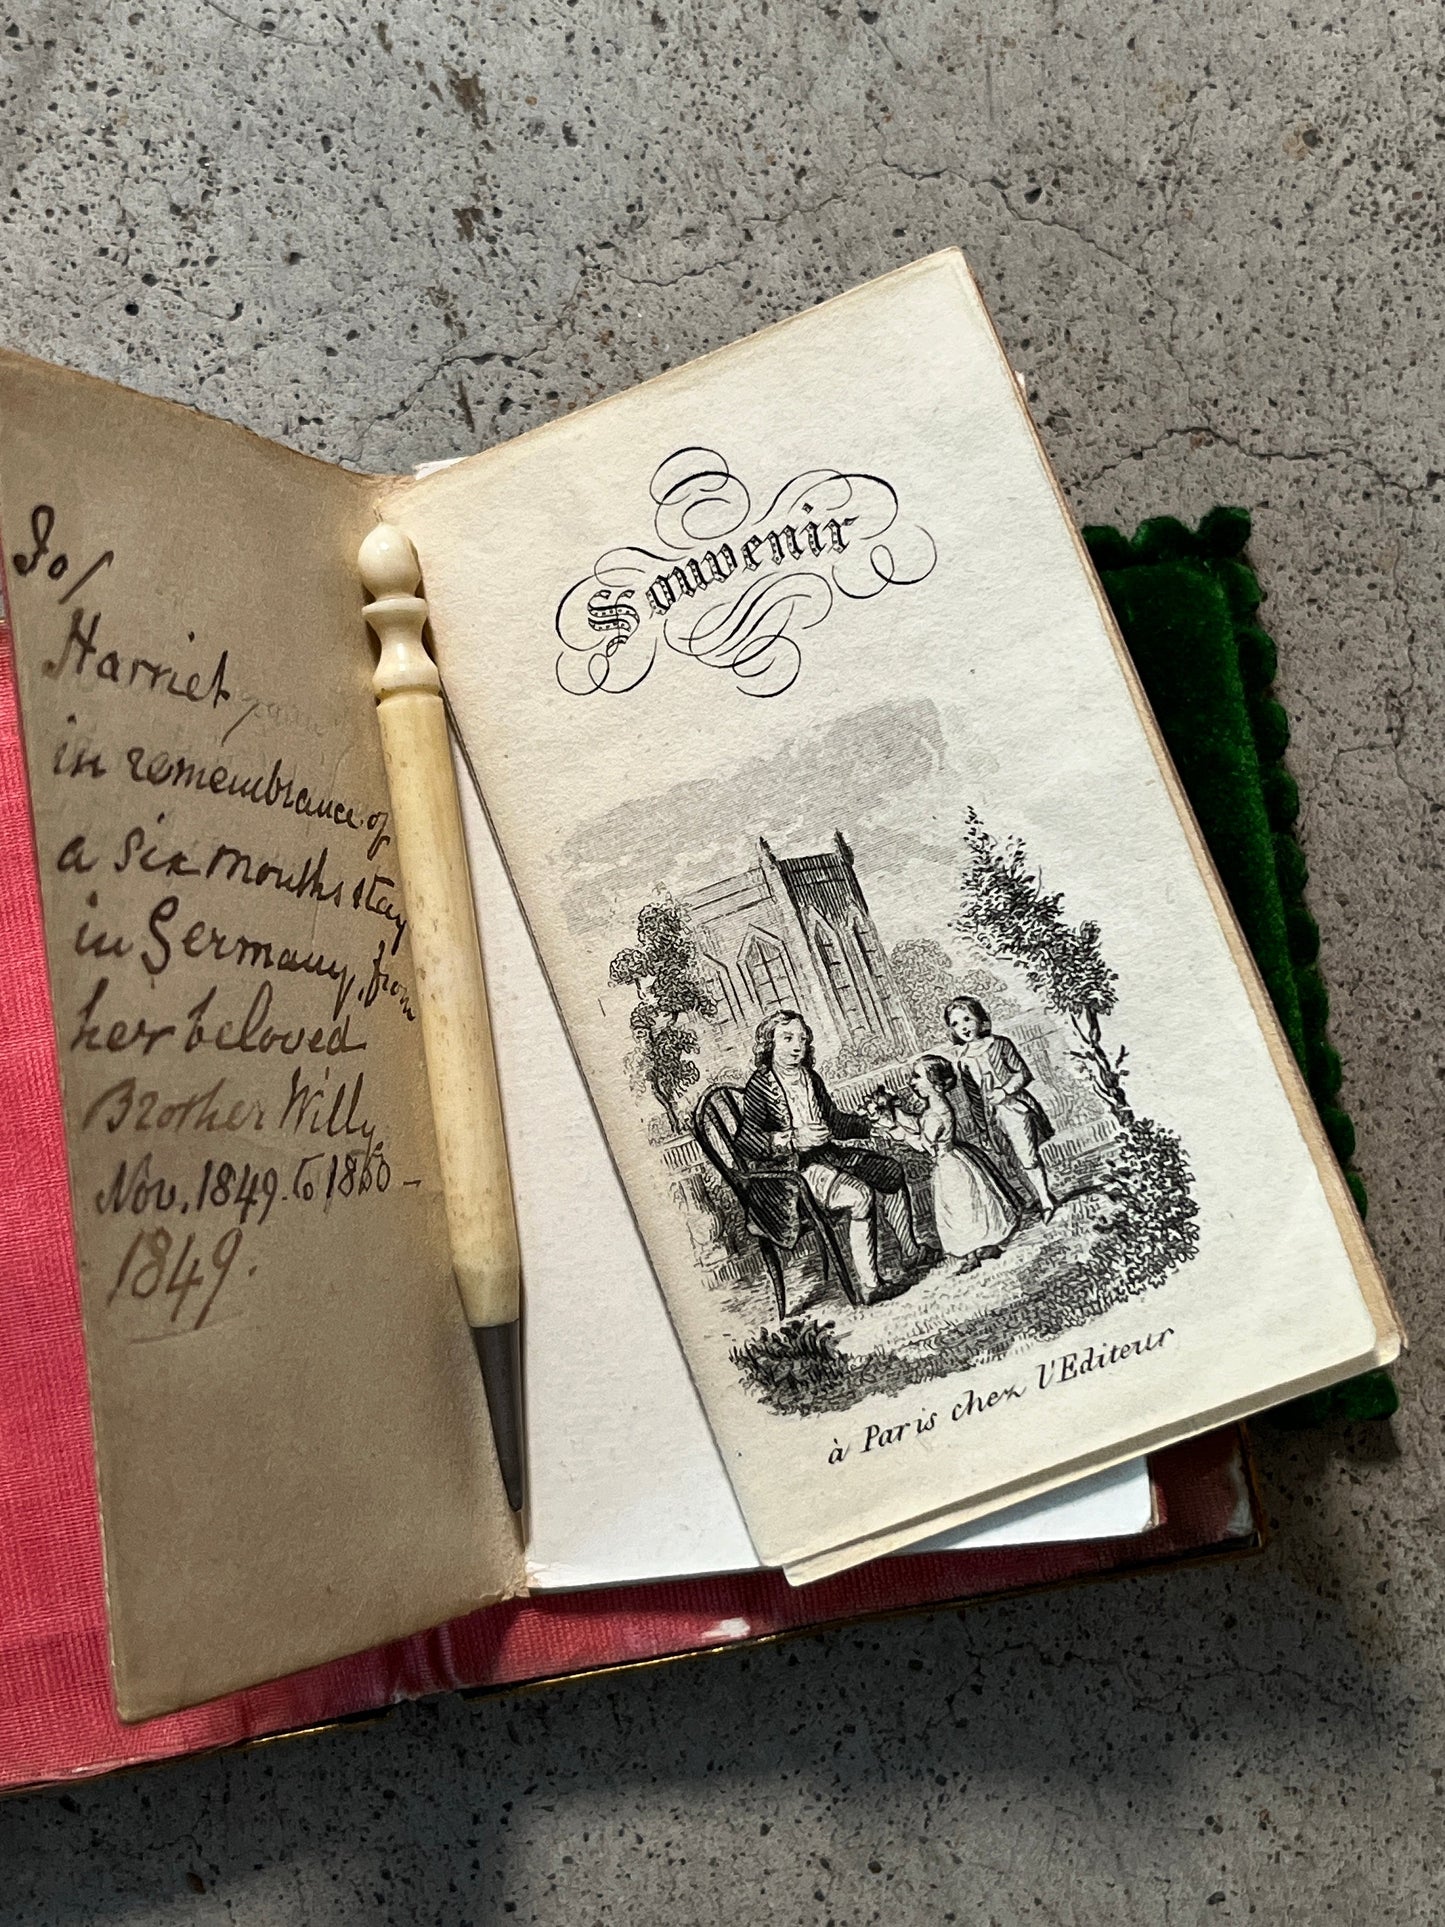 To/
Harriet
in remembrance of
a six months stay
in Germany, from
her beloved
Brother Willy
Nov. 1849. to 1860 –
1849.
Souvenir
à Paris chez l'Editeur